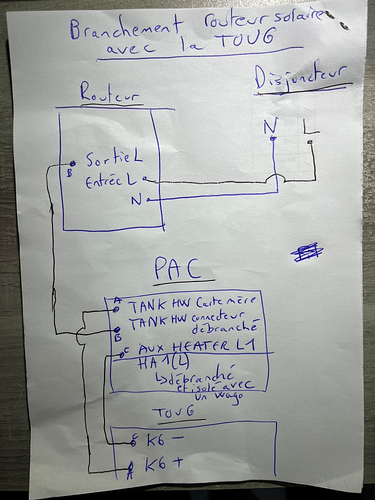 Branchement routeur solaire
avec la TOUG
Disjoncteur
Routeur
N L
Sortie L
B
Entrée L
N
PAC
A
TANK HW Carte mère
TANK HW connecteur
débranché
B
C AUX HEATER L1
HA1(L)
↳ débranché
et isolé avec
un wago
TOUG
C K6 -
A K6 +